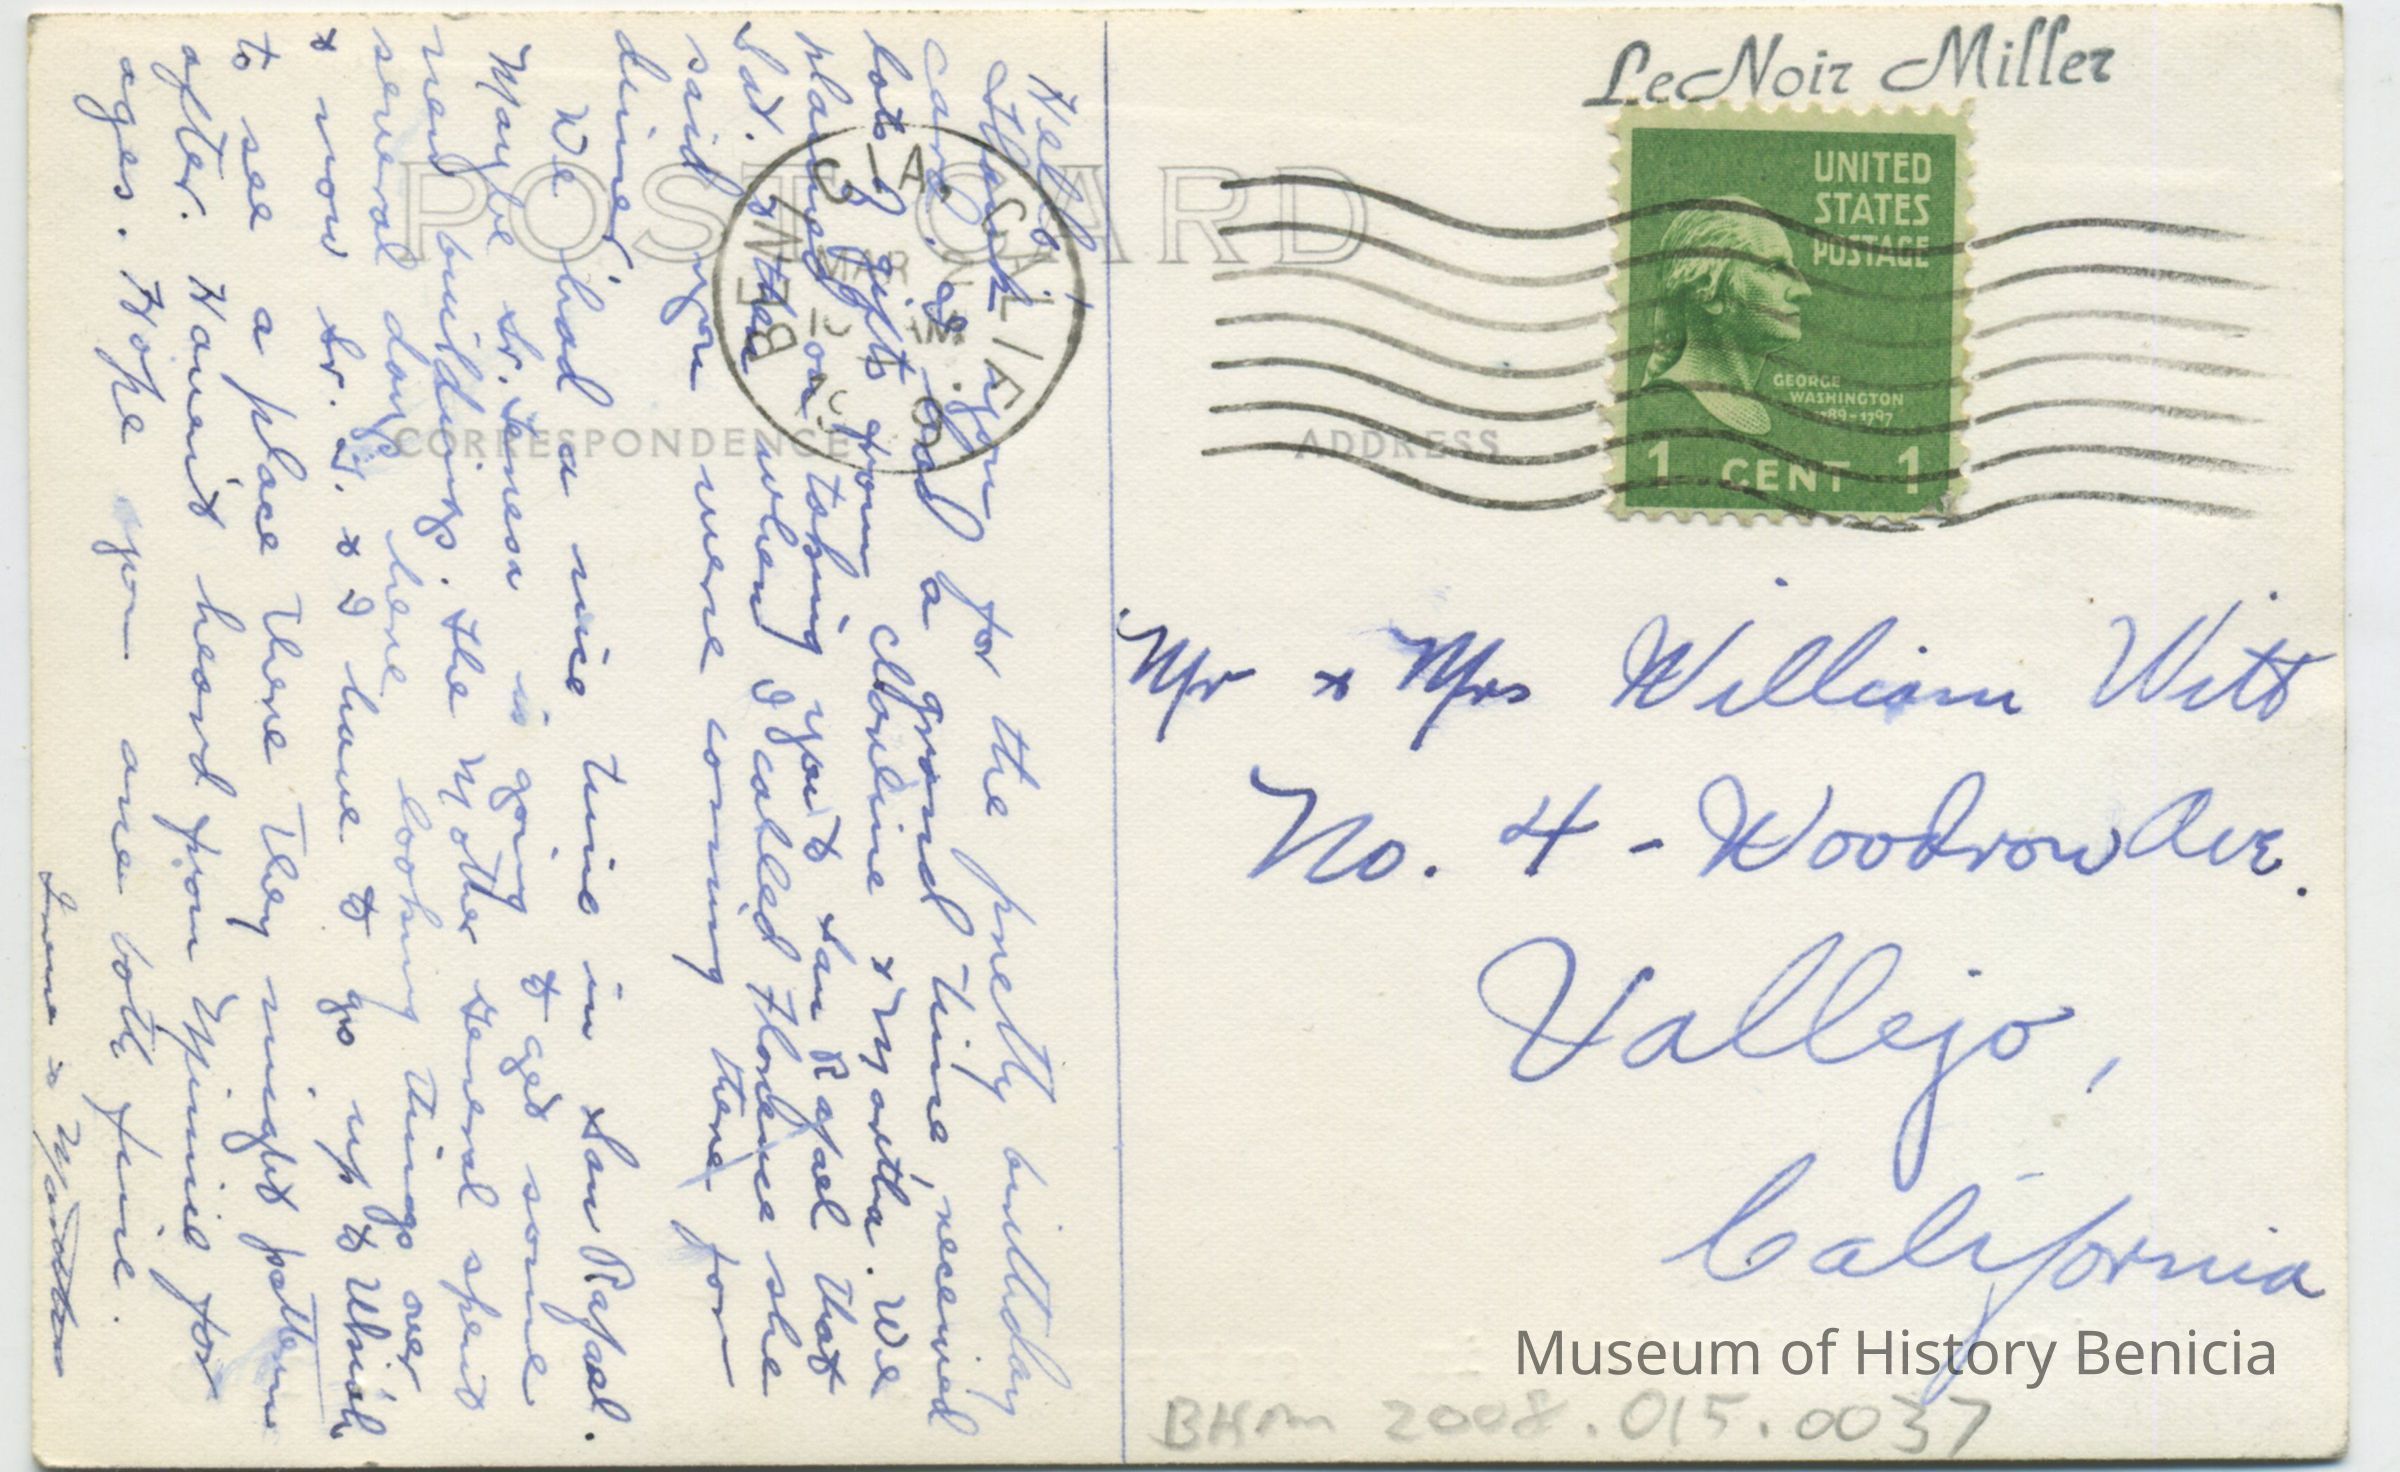 LeNoir Miller
POST CARD
CORRESPONDENCE
ADDRESS
BENICIA CALIF.
MAR 2
AM
UNITED
STATES
POSTAGE
GEORGE
WASHINGTON
1789-1797
1 CENT 1
Hello,
Thank you for the pretty birthday
card. Is had a grand time, received
lots of gifts from Clarline & Martha. We
planned on taking you to San Rafael that
Sat. & then when I called Florence she
said you were coming there for
dinner.
We had a nice time in San Rafael.
Maybe Sr. Teresa is going to get some
new buildings. the Mother General spent
several days here looking things over
& now Sr. T. & I have to go up to Ukiah
to see a place there they might pattern
after. Haven't heard from Minnie for
ages. Hope you are both fine.
Irene &
Mr & Mrs William Witt
No. 4 - Woodrow Ave.
Vallejo,
California
Museum of History Benicia
BHM 2008.015.0037